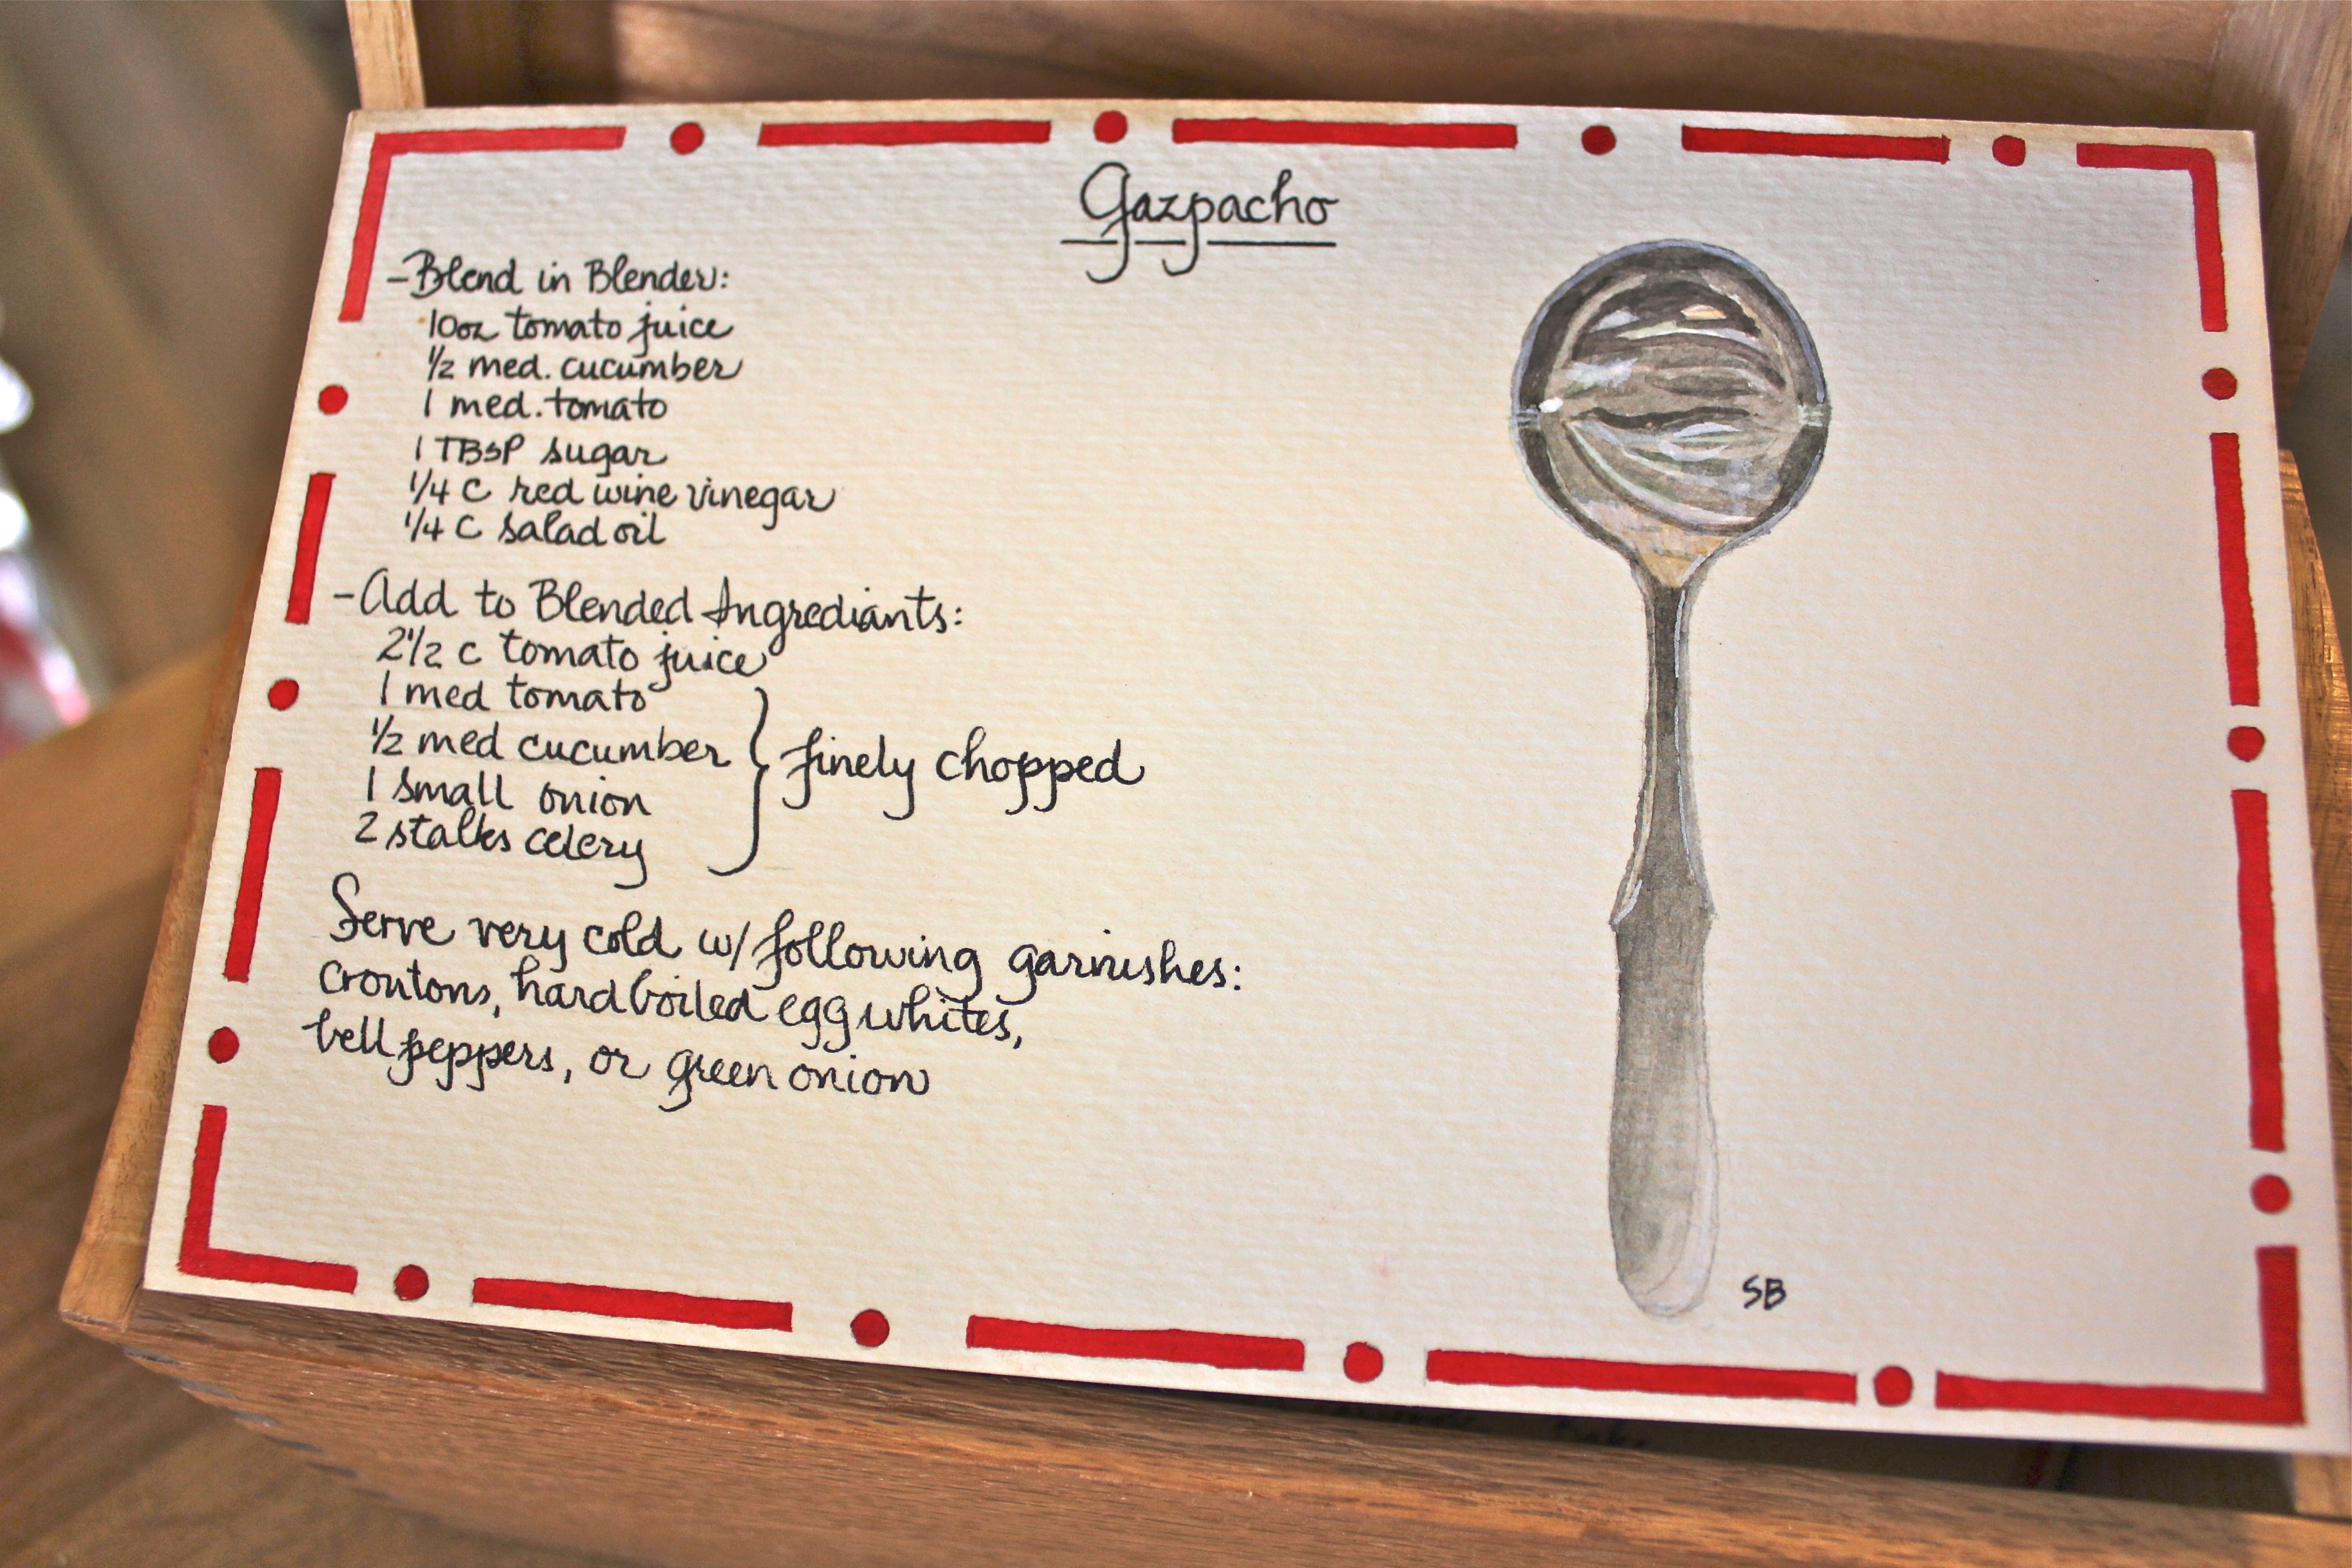 Gazpacho
-Blend in Blender:
10oz tomato juice
1/2 med. cucumber
1 med. tomato
1 TBSP sugar
1/4 C red wine vinegar
1/4 C salad oil
-Add to Blended Ingrediants:
2 1/2 c tomato juice
1 med tomato
1/2 med cucumber
1 small onion
2 stalks celery
finely chopped
Serve very cold w/ following garnishes:
croutons, hard boiled egg whites,
bell peppers, or green onion
SB